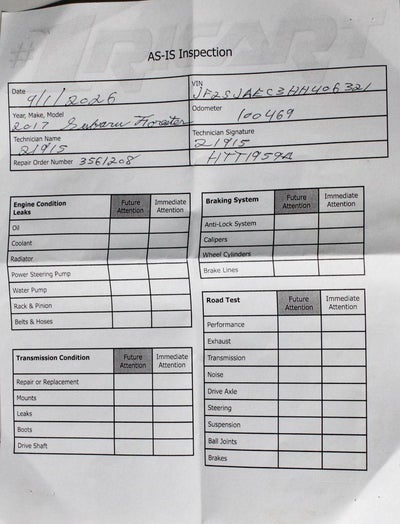 #1 RICART
AS-IS Inspection
Date 9/1/2026
VIN JF2SJAEC3HH406321
Year, Make, Model 2017 Subaru Forester
Odometer 100469
Technician Name 21915
Technician Signature 21915
Repair Order Number 3561208
HTT1959A
Engine Condition Future Attention Immediate Attention
Leaks
Oil
Coolant
Radiator
Power Steering Pump
Water Pump
Rack & Pinion
Belts & Hoses
Transmission Condition Future Attention Immediate Attention
Repair or Replacement
Mounts
Leaks
Boots
Drive Shaft
Braking System Future Attention Immediate Attention
Anti-Lock System
Calipers
Wheel Cylinders
Brake Lines
Road Test Future Attention Immediate Attention
Performance
Exhaust
Transmission
Noise
Drive Axle
Steering
Suspension
Ball Joints
Brakes